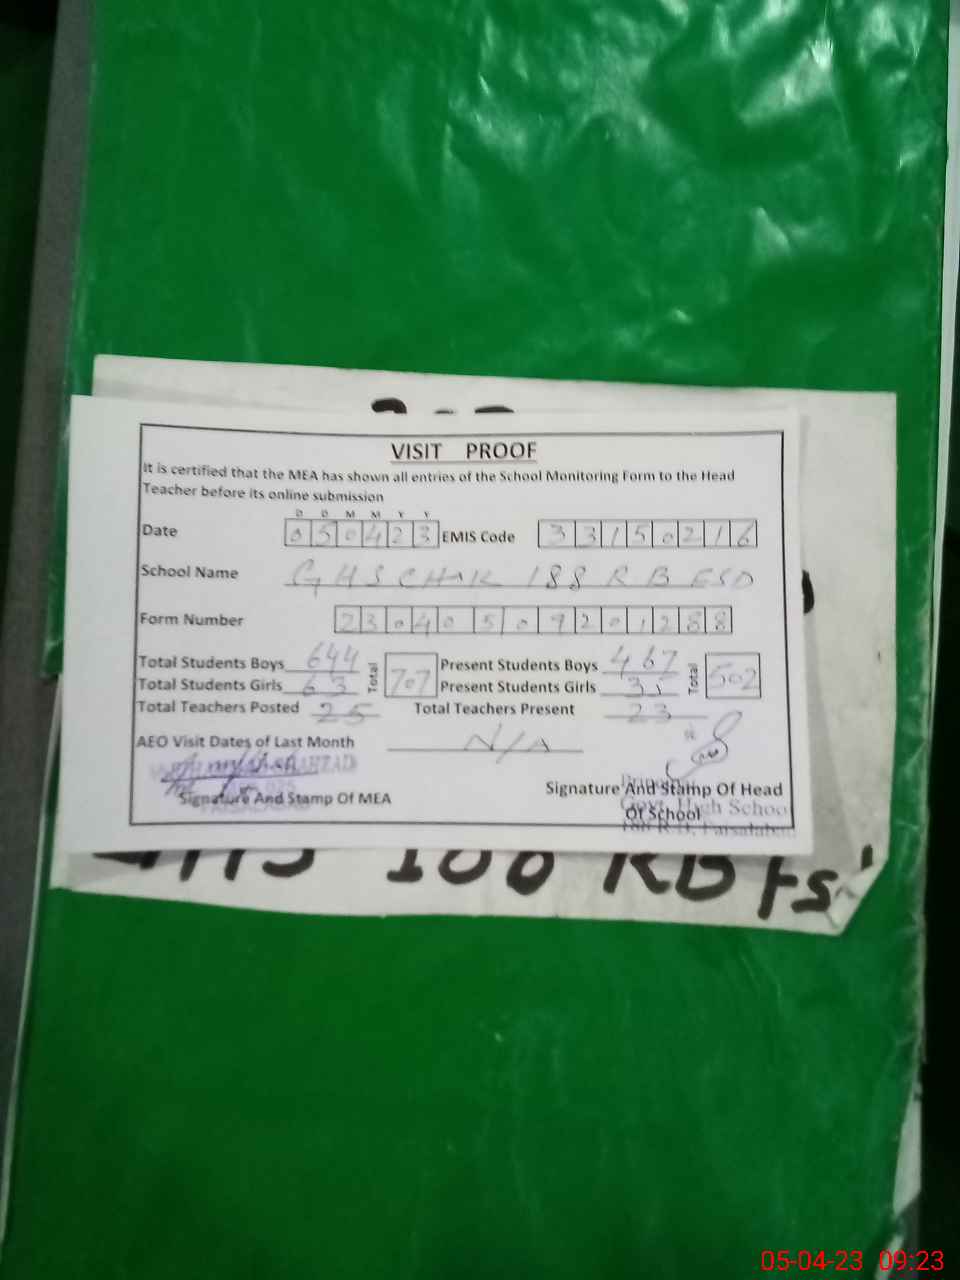 VISIT PROOF
It is certified that the MEA has shown all entries of the School Monitoring Form to the Head
Teacher before its online submission
D D M M Y Y
Date 050423 EMIS Code 33150216
School Name GHS CHAK 188 RB FSD
Form Number 23040509201288
Total Students Boys 644 Total 707 Present Students Boys 467 Total 502
Total Students Girls 63 Present Students Girls
Total Teachers Posted 25 Total Teachers Present 23
AEO Visit Dates of Last Month N/A
Signature And Stamp Of MEA
Signature And Stamp Of Head
Of School
Principal
Govt. High School
188 R.B. Faisalabad
GHS 188 RB Fsd
05-04-23 09:23